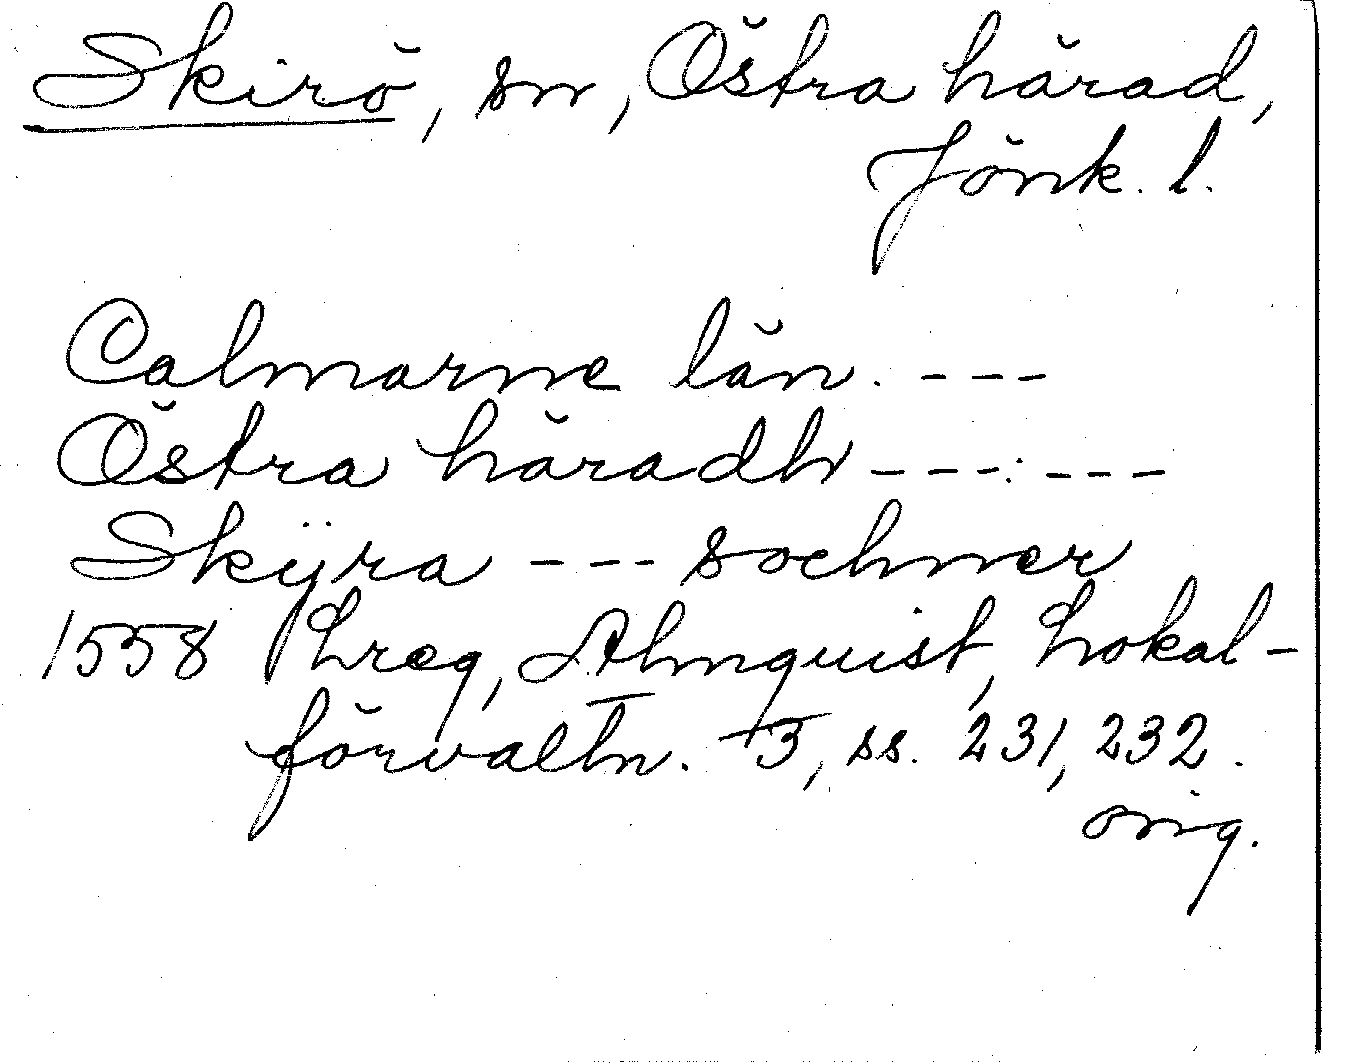 Skirö, sn, Östra härad,
Jönk. l.
Calmarne län. ---
Östra häradh ---:---
Skÿra --- sochner
1558 Phreg, Almquist, Lokal-
förvaltn. 3, ss. 231, 232.
orig.